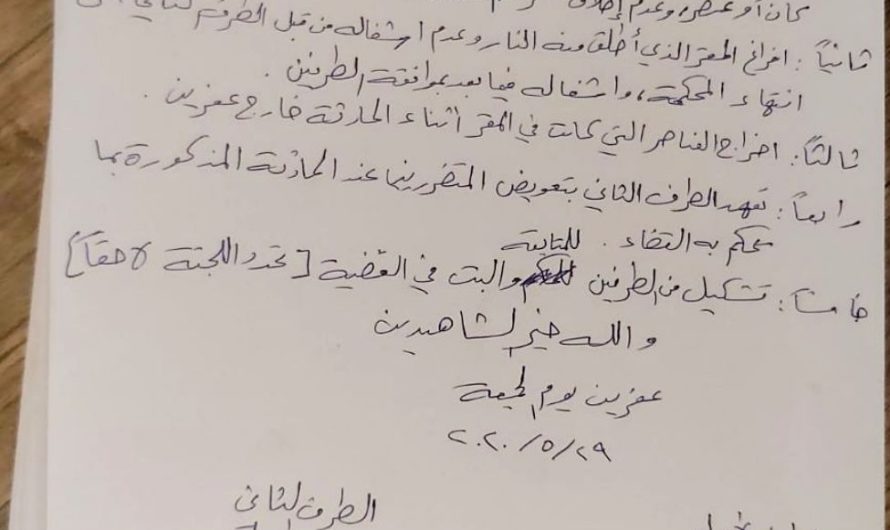 كان أو عنصر، وعدم إطلاق
ثانياً : افراغ المقر الذي أطلق منه النار وعدم اشغاله من قبل الطرف الثاني
انتهاء المحكمة، واشغاله فيما بعد بموافقة الطرفين .
ثالثاً : اخراج العناصر التي كانت في المقر أثناء الحادثة خارج عفرين .
رابعاً : تعهد الطرف الثاني بتعويض المتضررين عن الحادثة المذكورة بما
يحكم به القضاء . للمتابعة
خامساً : تشكيل من الطرفين والبت في القضية [تحدد اللجنة لاحقاً]
والله خير الشاهدين
عفرين يوم الجمعة
٢٠٢٠/٥/٢٩
الطرف الثاني